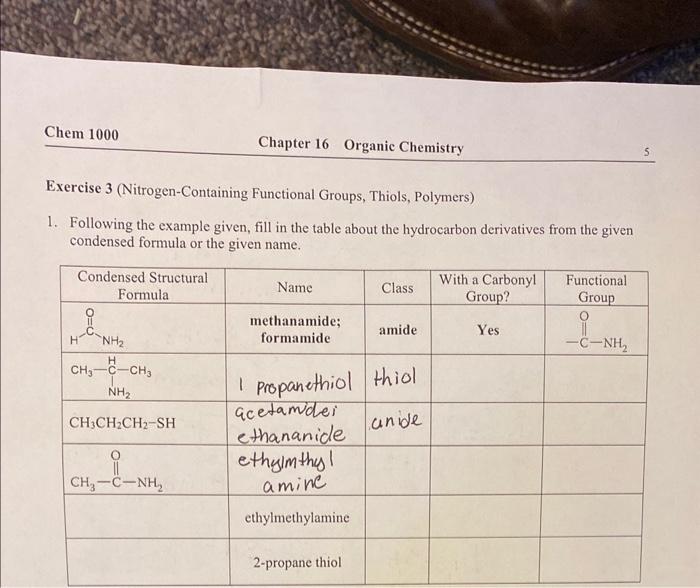 Chem 1000
Chapter 16 Organic Chemistry
5
Exercise 3 (Nitrogen-Containing Functional Groups, Thiols, Polymers)
1. Following the example given, fill in the table about the hydrocarbon derivatives from the given
condensed formula or the given name.
Condensed Structural
Formula
Name
Class
With a Carbonyl
Group?
Functional
Group
O
H C NH₂
methanamide;
formamide
amide
Yes
O
—C—NH₂
H
CH₃—C—CH₃
NH₂
1 propanethiol
thiol
CH₃CH₂CH₂–SH
acetamdei
ethananide
anide
O
CH₃—C—NH₂
ethylmthyl
amine
ethylmethylamine
2-propane thiol